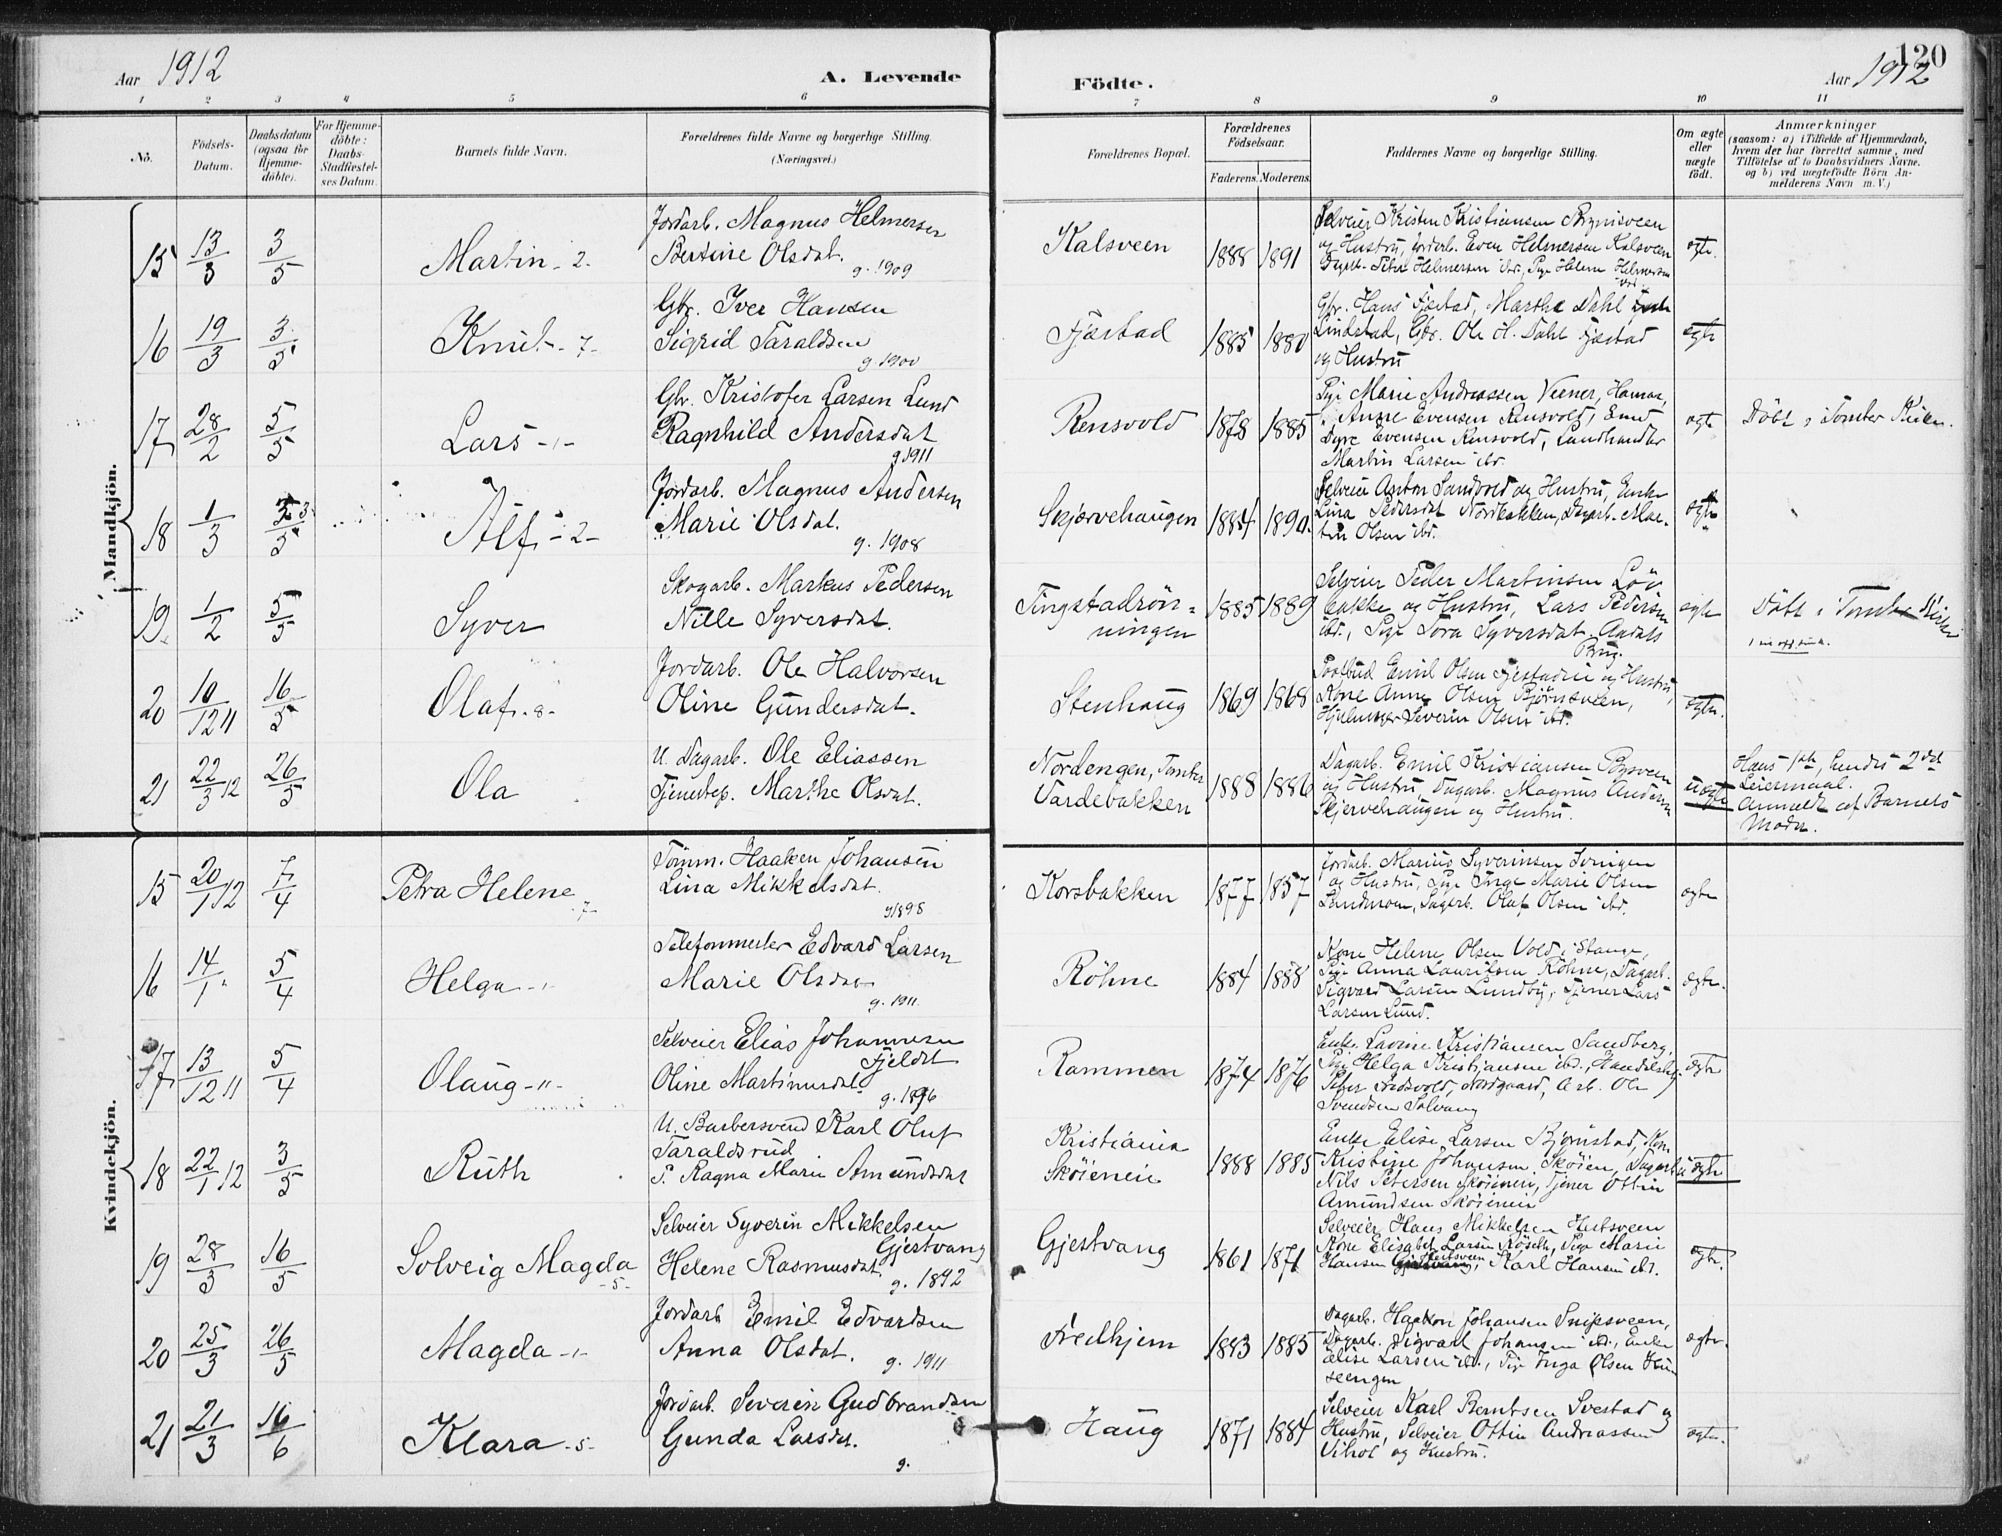 Aar 1912
A. Levende
Födte.
Aar 1912
120
1 2 3 4 5 6 7 8 9 10 11
No.
Födsels-Datum.
Daabsdatum (ogsaa for Hjemme-döbte).
For Hjemme-döbte: Daabs-Stadfæstel-ses Datum.
Barnets fulde Navn.
Forældrenes fulde Navne og borgerlige Stilling. (Næringsvei.)
Forældrenes Bopæl.
Forældrenes Födselsaar.
Faderens. Moderens.
Faddernes Navne og borgerlige Stilling.
Om ægte eller uægte födt.
Anmærkninger
(saasom: a) i Tilfælde af Hjemmedaab,
hvem der har forrettet samme, med
Tilföielse af to Daabsvidners Navne.
og b) ved uægtefödte Börn An-
melderens Navn m. V.)
Mandkjön.
15 13/3 3/5 Martin -2- Jordarb. Magnus Helmersen
Bertine Olsdat. g. 1909
Kalsveen 1888 1891
Selveier Kristen Kristiansen
og Hustru, Jordarb. Even Helmersen Kalsveen
Helmersen ibd., Pige Helene Helmersen
ibd.
ægte.
16 19/3 3/5 Knut -7- Gbr. Iver Hansen
Sigrid Taraldsen g. 1900
Fjæstad 1885 1880
Gbr. Hans Fjæstad, Marthe Dahl
Lindstad, Gbr. Ole H. Dahl Fjæstad
og Hustru
ægte
17 28/2 5/5 Lars -1- Gbr. Kristofer Larsen Lund
Ragnhild Andersdat g. 1911
Rensvold 1878 1885
Pige Marie Andreassen Viener, Hamar,
Anne Evensen Rensvold,
Dyre Evensen Rensvold, Landhandler
Martin Larsen ibd.
ægte
Döbt i Tomter Kirken.
18 1/3 3/5 Alf -2- Jordarb. Magnus Andersen
Marie Olsdat. g. 1908
Skjærvehaugen 1884 1890.
Selveier Anton Sandvold og Hustru, Enke
Lina Pedersdat Nordbakken, Dagarb. Mar-
tin Olsen ibd.
ægte
19. 1/2 5/5 Syver Skogarb. Markus Pedersen
Nille Syversdat.
Tingstadrön-
ningen 1885 1889
Selveier Peder Martinsen Löv
bakke og Hustru, Lars Pedersen
ibd., Pige Tora Syversdat. Aadals
Brug.
ægte
Döbt i Tomter Kirke
20 10/12 11 16/5 Olaf -8- Jordarb. Ole Halvorsen
Oline Gundersdat.
Stenhaug 1869 1868
Postbud Emil Olsen Fjestadeie og Hustru,
Kone Anne Olsen Björnsveen,
Severin Olsen ibd.
ægte.
21 22/3 12 26/5 Ola U. Dagarb. Ole Eliassen
Tjenestep. Marthe Olsdat.
Nordengen, Tomter
Vardebakken 1888 1886
Dagarb. Emil Kristiansen Bysveen
og Hustru, Dagarb. Magnus Andersen
Skjervehaugen og Hustru.
uægte
Hans 1ste, hendes 2det
Leiermaal.
Anmeldt af Barnets
Moder.
Kvindekjön.
15 20/1 12 7/4 Petra Helene -7- Tömm. Haaken Johansen
Lina Mikkelsdat. g. 1898
Korsbakken 1877 1857
Jordarb. Marius Syverinsen
og Hustru, Pige Inge Marie Olsen
Lundmoen, Dagarb. Olaf Olsen ibd.
ægte
16 14/1 5/4 Helga -1- Telefonmester Edvard Larsen
Marie Olsdat g. 1911
Röhne 1884 1888
Kone Helene Olsen Vold, Stange,
Pige Anna Lauritsen Röhne, Dagarb.
Sigvard Larsen Lundby, Tjener Lars
Larsen Lund.
ægte.
17 13/12 11 5/4 Olaug -11- Selveier Elias Johannesen
Fjeldet
Oline Martinusdat. g. 1896
Rammen 1874 1876
Enke Lavine Kristiansen Sandberg,
Pige Helga Kristiansen ibd., Handelsbetj.
Peter Fredsvold, Nordgaard, Arb. Ole
Svendsen Solvang
ægte
18 22/1 12 3/5 Ruth U. Barbersvend Karl Oluf
Taraldsrud
P. Ragna Marie Amundsdat
Kristiania
Sköienein 1888 1885
Enke Elise Larsen Björnstad, Kon
Kristine Johansen Sköien, Dagarb.
Nils Petersen Sköienein, Tjener Ottin
Amundsen Sköienein
uægte
19 28/3 16/5 Solveig Magda -5- Selveier Syverin Mikkelsen
Gjestvang
Helene Rasmusdat. g. 1892
Gjestvang 1861 1871
Selveier Hans Mikkelsen Hultsveen
Kone Elisabet Larsen Röseth, Pige Marie
Hansen Hultsveen, Karl Hansen ibd.
ægte.
20 25/3 26/5 Magda -1- Jordarb. Emil Edvardsen
Anna Olsdat. g. 1911
Fredhjem 1883 1885
Dagarb. Haakon Johansen Snipsveen,
Dagarb. Sigvart Johansen ibd., Enke
Elise Larsen ibd., Pige Inga Olsen
seengen
ægte.
21 21/3 16/6 Klara -5- Jordarb. Severin Gudbrandsen
Gunda Larsdat. g.
Haug 1871 1884
Selveier Karl Berntsen Svestad og
Hustru, Selveier Ottin Andreassen
Vihol og Hustru.
ægte.